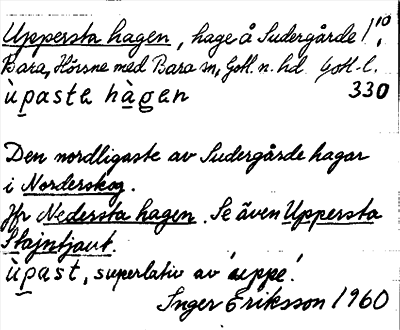 Uppersta hagen, hage å Sudergårde 1/10.
Bara, Hörsne med Bara sn, Gotl. n. hd. Gotl. l.
ùpasta hàgen 330
Den nordligaste av Sudergårde hagar
i Norderskog.
Jfr Nedersta hagen. Se även Uppersta
Stajntjaut.
ùpast, superlativ av 'uppe'.
Inger Eriksson 1960